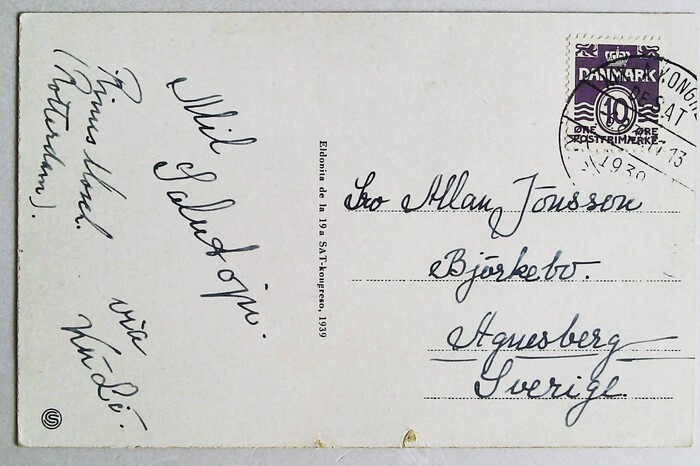 Mil
Salutojn.
via
Ku-Li.
(Rotterdam).
Eldonita de la 19a SAT-kongreso, 1939
DANMARK
10
ØRE ØRE
POSTFRIMÆRKE
KONG
DE SAT
13
1939
Allan Jönsson
Björkebo.
Agnesberg
Sverige.